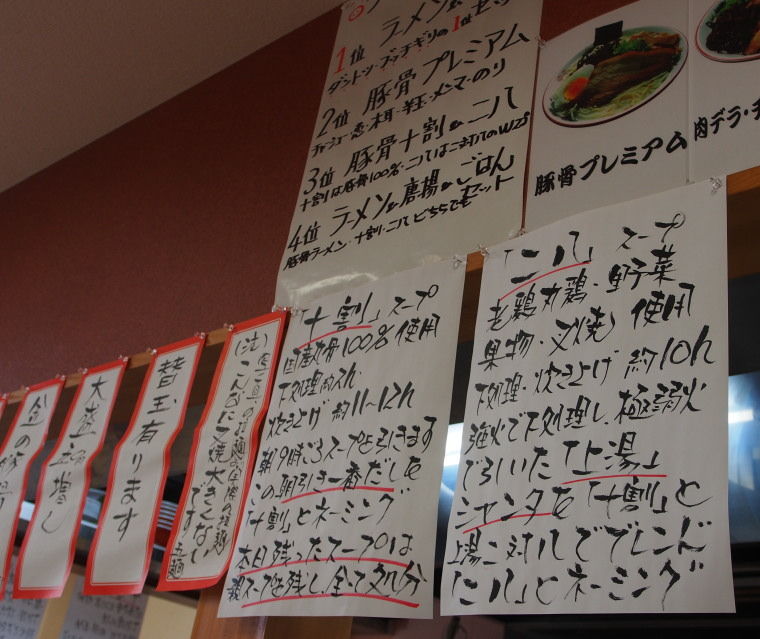 1位 ラーメン&
ダントツ・ブッチギリの1位セット
2位 豚骨プレミアム
チャーシュー・葱・木耳・半玉・メンマ・のり
3位 豚骨十割&二八
十割は豚骨100%・二八は二対八のWスープ
4位 ラーメン&唐揚&ごはん
豚骨ラーメン・十割・二八どちらでもセット
豚骨プレミアム
肉デラ・チ
「十割」スープ
国産丸骨100%使用
下処理約2h
炊き上げ 約11〜12h
朝9時ごろスープを引きます
この朝引き一番だしを
「十割」とネーミング
本日残ったスープは
親スープを残し、全て処分
「二八」スープ
老鶏丸鶏・野菜
果物・叉焼) 使用
下処理・炊き上げ 約10h
強火で下処理し、極弱火
でひいた「上湯」
シャンタンを「十割」と
上湯二対八でブレンド
「二八」とネーミング
(注)
こんなに叉焼大きくない
です。
替玉有ります
大盛
増し
金の